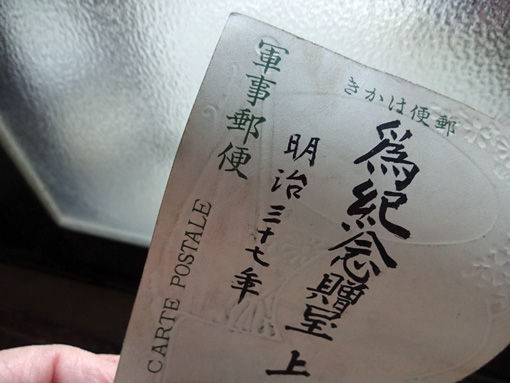 きかは便郵
為紀念贈呈 上
明治三十七年
軍事郵便
CARTE POSTALE